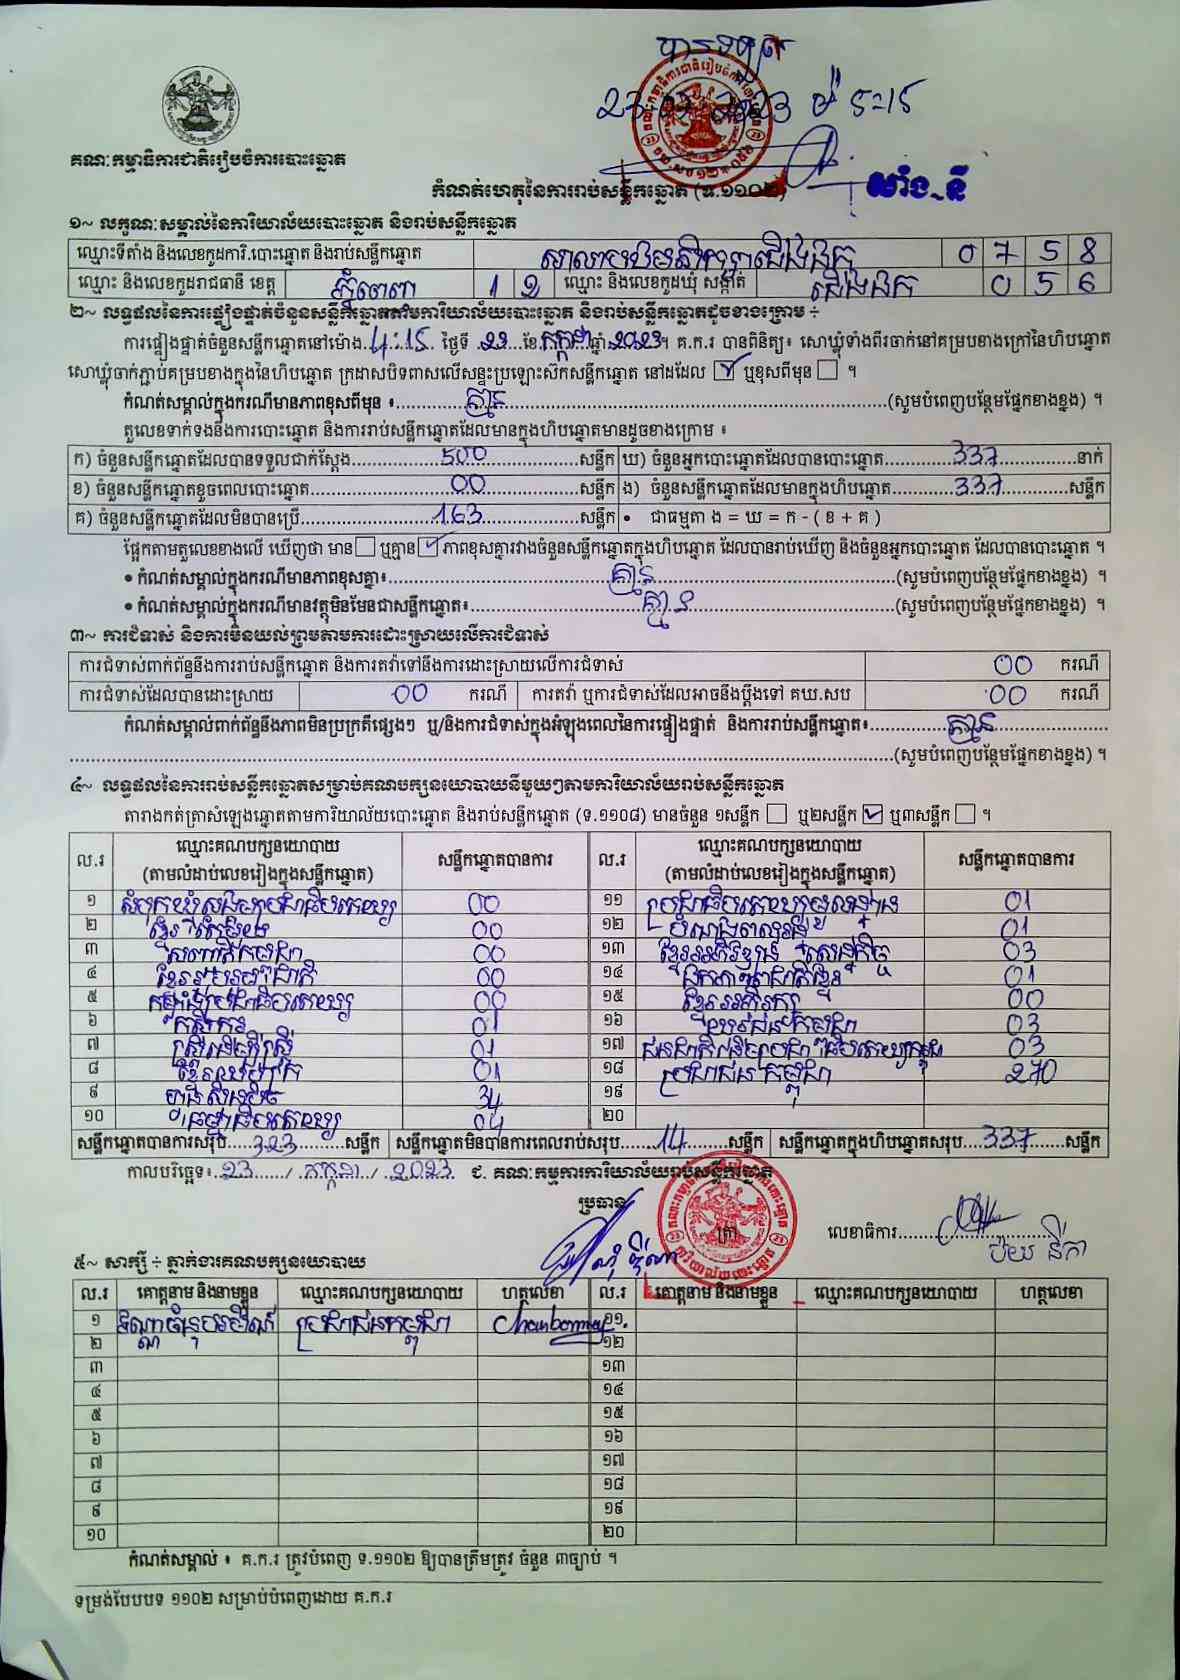 បានទទួល
23 07 2023 ម៉ 5:15
គណៈកម្មាធិការជាតិរៀបចំការបោះឆ្នោត
កំណត់ហេតុនៃការរាប់សន្លឹកឆ្នោត (ទ.១១០២)
សាំង នី
១~ លក្ខណៈសម្គាល់នៃការិយាល័យបោះឆ្នោត និងរាប់សន្លឹកឆ្នោត
ឈ្មោះទីតាំង និងលេខកូដការិ.បោះឆ្នោត និងរាប់សន្លឹកឆ្នោត សាលាបឋមសិក្សាជើងឯក 0 7 5 8
ឈ្មោះ និងលេខកូដរាជធានី ខេត្ត ភ្នំពេញ 1 2 ឈ្មោះ និងលេខកូដឃុំ សង្កាត់ ជើងឯក 0 5 6
២~ លទ្ធផលនៃការផ្ទៀងផ្ទាត់ចំនួនសន្លឹកឆ្នោតតាមការិយាល័យបោះឆ្នោត និងរាប់សន្លឹកឆ្នោតដូចខាងក្រោម ÷
ការផ្ទៀងផ្ទាត់ចំនួនសន្លឹកឆ្នោតនៅម៉ោង 4:15 ថ្ងៃទី 23 ខែ កក្កដា ឆ្នាំ 2023។ គ.ក.រ បានពិនិត្យ៖ សោឃ្លុំទាំងពីរចាក់នៅគម្របខាងក្រៅនៃហិបឆ្នោត
សោឃ្លុំចាក់ភ្ជាប់គម្របខាងក្នុងនៃហិបឆ្នោត ក្រដាសបិទពាសលើសន្ទះប្រឡោះស៊កសន្លឹកឆ្នោត នៅដដែល ☑ ឬខុសពីមុន ☐ ។
កំណត់សម្គាល់ក្នុងករណីមានភាពខុសពីមុន ៖ គ្មាន (សូមបំពេញបន្ថែមផ្នែកខាងខ្នង) ។
តួលេខទាក់ទងនឹងការបោះឆ្នោត និងការរាប់សន្លឹកឆ្នោតដែលមានក្នុងហិបឆ្នោតមានដូចខាងក្រោម ៖
ក) ចំនួនសន្លឹកឆ្នោតដែលបានទទួលជាក់ស្តែង 500 សន្លឹក ឃ) ចំនួនអ្នកបោះឆ្នោតដែលបានបោះឆ្នោត 337 នាក់
ខ) ចំនួនសន្លឹកឆ្នោតខូចពេលបោះឆ្នោត 00 សន្លឹក ង) ចំនួនសន្លឹកឆ្នោតដែលមានក្នុងហិបឆ្នោត 337 សន្លឹក
គ) ចំនួនសន្លឹកឆ្នោតដែលមិនបានប្រើ 163 សន្លឹក • ជាធម្មតា ង = ឃ = ក - ( ខ + គ )
ផ្អែកតាមតួលេខខាងលើ ឃើញថា មាន ☐ ឬគ្មាន ☑ ភាពខុសគ្នារវាងចំនួនសន្លឹកឆ្នោតក្នុងហិបឆ្នោត ដែលបានរាប់ឃើញ និងចំនួនអ្នកបោះឆ្នោត ដែលបានបោះឆ្នោត ។
• កំណត់សម្គាល់ក្នុងករណីមានភាពខុសគ្នា៖ គ្មាន (សូមបំពេញបន្ថែមផ្នែកខាងខ្នង) ។
• កំណត់សម្គាល់ក្នុងករណីមានវត្ថុមិនមែនជាសន្លឹកឆ្នោត៖ គ្មាន (សូមបំពេញបន្ថែមផ្នែកខាងខ្នង) ។
៣~ ការជំទាស់ និងការមិនយល់ព្រមតាមការដោះស្រាយលើការជំទាស់
ការជំទាស់ពាក់ព័ន្ធនឹងការរាប់សន្លឹកឆ្នោត និងការតវ៉ាទៅនឹងការដោះស្រាយលើការជំទាស់ 00 ករណី
ការជំទាស់ដែលបានដោះស្រាយ 00 ករណី ការតវ៉ា ឬការជំទាស់ដែលអាចនឹងប្តឹងទៅ គឃ.សប 00 ករណី
កំណត់សម្គាល់ពាក់ព័ន្ធនឹងភាពមិនប្រក្រតីផ្សេងៗ ឬ/និងការជំទាស់ក្នុងអំឡុងពេលនៃការផ្ទៀងផ្ទាត់ និងការរាប់សន្លឹកឆ្នោត៖ គ្មាន
(សូមបំពេញបន្ថែមផ្នែកខាងខ្នង) ។
៤~ លទ្ធផលនៃការរាប់សន្លឹកឆ្នោតសម្រាប់គណបក្សនយោបាយនីមួយៗតាមការិយាល័យរាប់សន្លឹកឆ្នោត
តារាងកត់ត្រាសំឡេងឆ្នោតតាមការិយាល័យបោះឆ្នោត និងរាប់សន្លឹកឆ្នោត (ទ.១១០៨) មានចំនួន ១សន្លឹក ☐ ឬ២សន្លឹក ☑ ឬ៣សន្លឹក ☐ ។
ល.រ ឈ្មោះគណបក្សនយោបាយ (តាមលំដាប់លេខរៀងក្នុងសន្លឹកឆ្នោត) សន្លឹកឆ្នោតបានការ ល.រ ឈ្មោះគណបក្សនយោបាយ (តាមលំដាប់លេខរៀងក្នុងសន្លឹកឆ្នោត) សន្លឹកឆ្នោតបានការ
១ សំបុកឃ្មុំសង្គមប្រជាធិបតេយ្យ 00 ១១ ប្រជាធិបតេយ្យមូលដ្ឋាន 01
២ ខ្មែរតែមួយ 00 ១២ បំណងពលរដ្ឋ 01
៣ សញ្ជាតិកម្ពុជា 00 ១៣ ខ្មែរអភិវឌ្ឍន៍សេដ្ឋកិច្ច 03
៤ ខ្មែររួបរួមជាតិ 00 ១៤ ឯកភាពជាតិខ្មែរ 01
៥ កម្លាំងប្រជាធិបតេយ្យ 00 ១៥ ខ្មែរអភិរក្ស 00
៦ កសិករ 01 ១៦ យុវជនកម្ពុជា 03
៧ ស្ត្រីដើម្បីស្ត្រី 01 ១៧ ជនជាតិដើមប្រជាធិបតេយ្យកម្ពុជា 03
៨ ខ្មែរឈប់ក្រ 01 ១៨ ប្រជាជនកម្ពុជា 270
៩ ហ្វ៊ុនស៊ិនប៉ិច 34 ១៩
១០ ធម្មាធិបតេយ្យ 04 ២០
សន្លឹកឆ្នោតបានការសរុប 323 សន្លឹក សន្លឹកឆ្នោតមិនបានការពេលរាប់សរុប 14 សន្លឹក សន្លឹកឆ្នោតក្នុងហិបឆ្នោតសរុប 337 សន្លឹក
កាលបរិច្ឆេទ៖ 23 / កក្កដា / 2023 ជ. គណៈកម្មការការិយាល័យរាប់សន្លឹកឆ្នោត
ប្រធាន ត្រា លេខាធិការ
៥~ សាក្សី ÷ ភ្នាក់ងារគណបក្សនយោបាយ
ល.រ គោត្តនាម និងនាមខ្លួន ឈ្មោះគណបក្សនយោបាយ ហត្ថលេខា ល.រ គោត្តនាម និងនាមខ្លួន ឈ្មោះគណបក្សនយោបាយ ហត្ថលេខា
១ ប្រជាជនកម្ពុជា ១១
២ ១២
៣ ១៣
៤ ១៤
៥ ១៥
៦ ១៦
៧ ១៧
៨ ១៨
៩ ១៩
១០ ២០
កំណត់សម្គាល់ ៖ គ.ក.រ ត្រូវបំពេញ ទ.១១០២ ឱ្យបានត្រឹមត្រូវ ចំនួន ៣ច្បាប់ ។
ទម្រង់បែបបទ ១១០២ សម្រាប់បំពេញដោយ គ.ក.រ